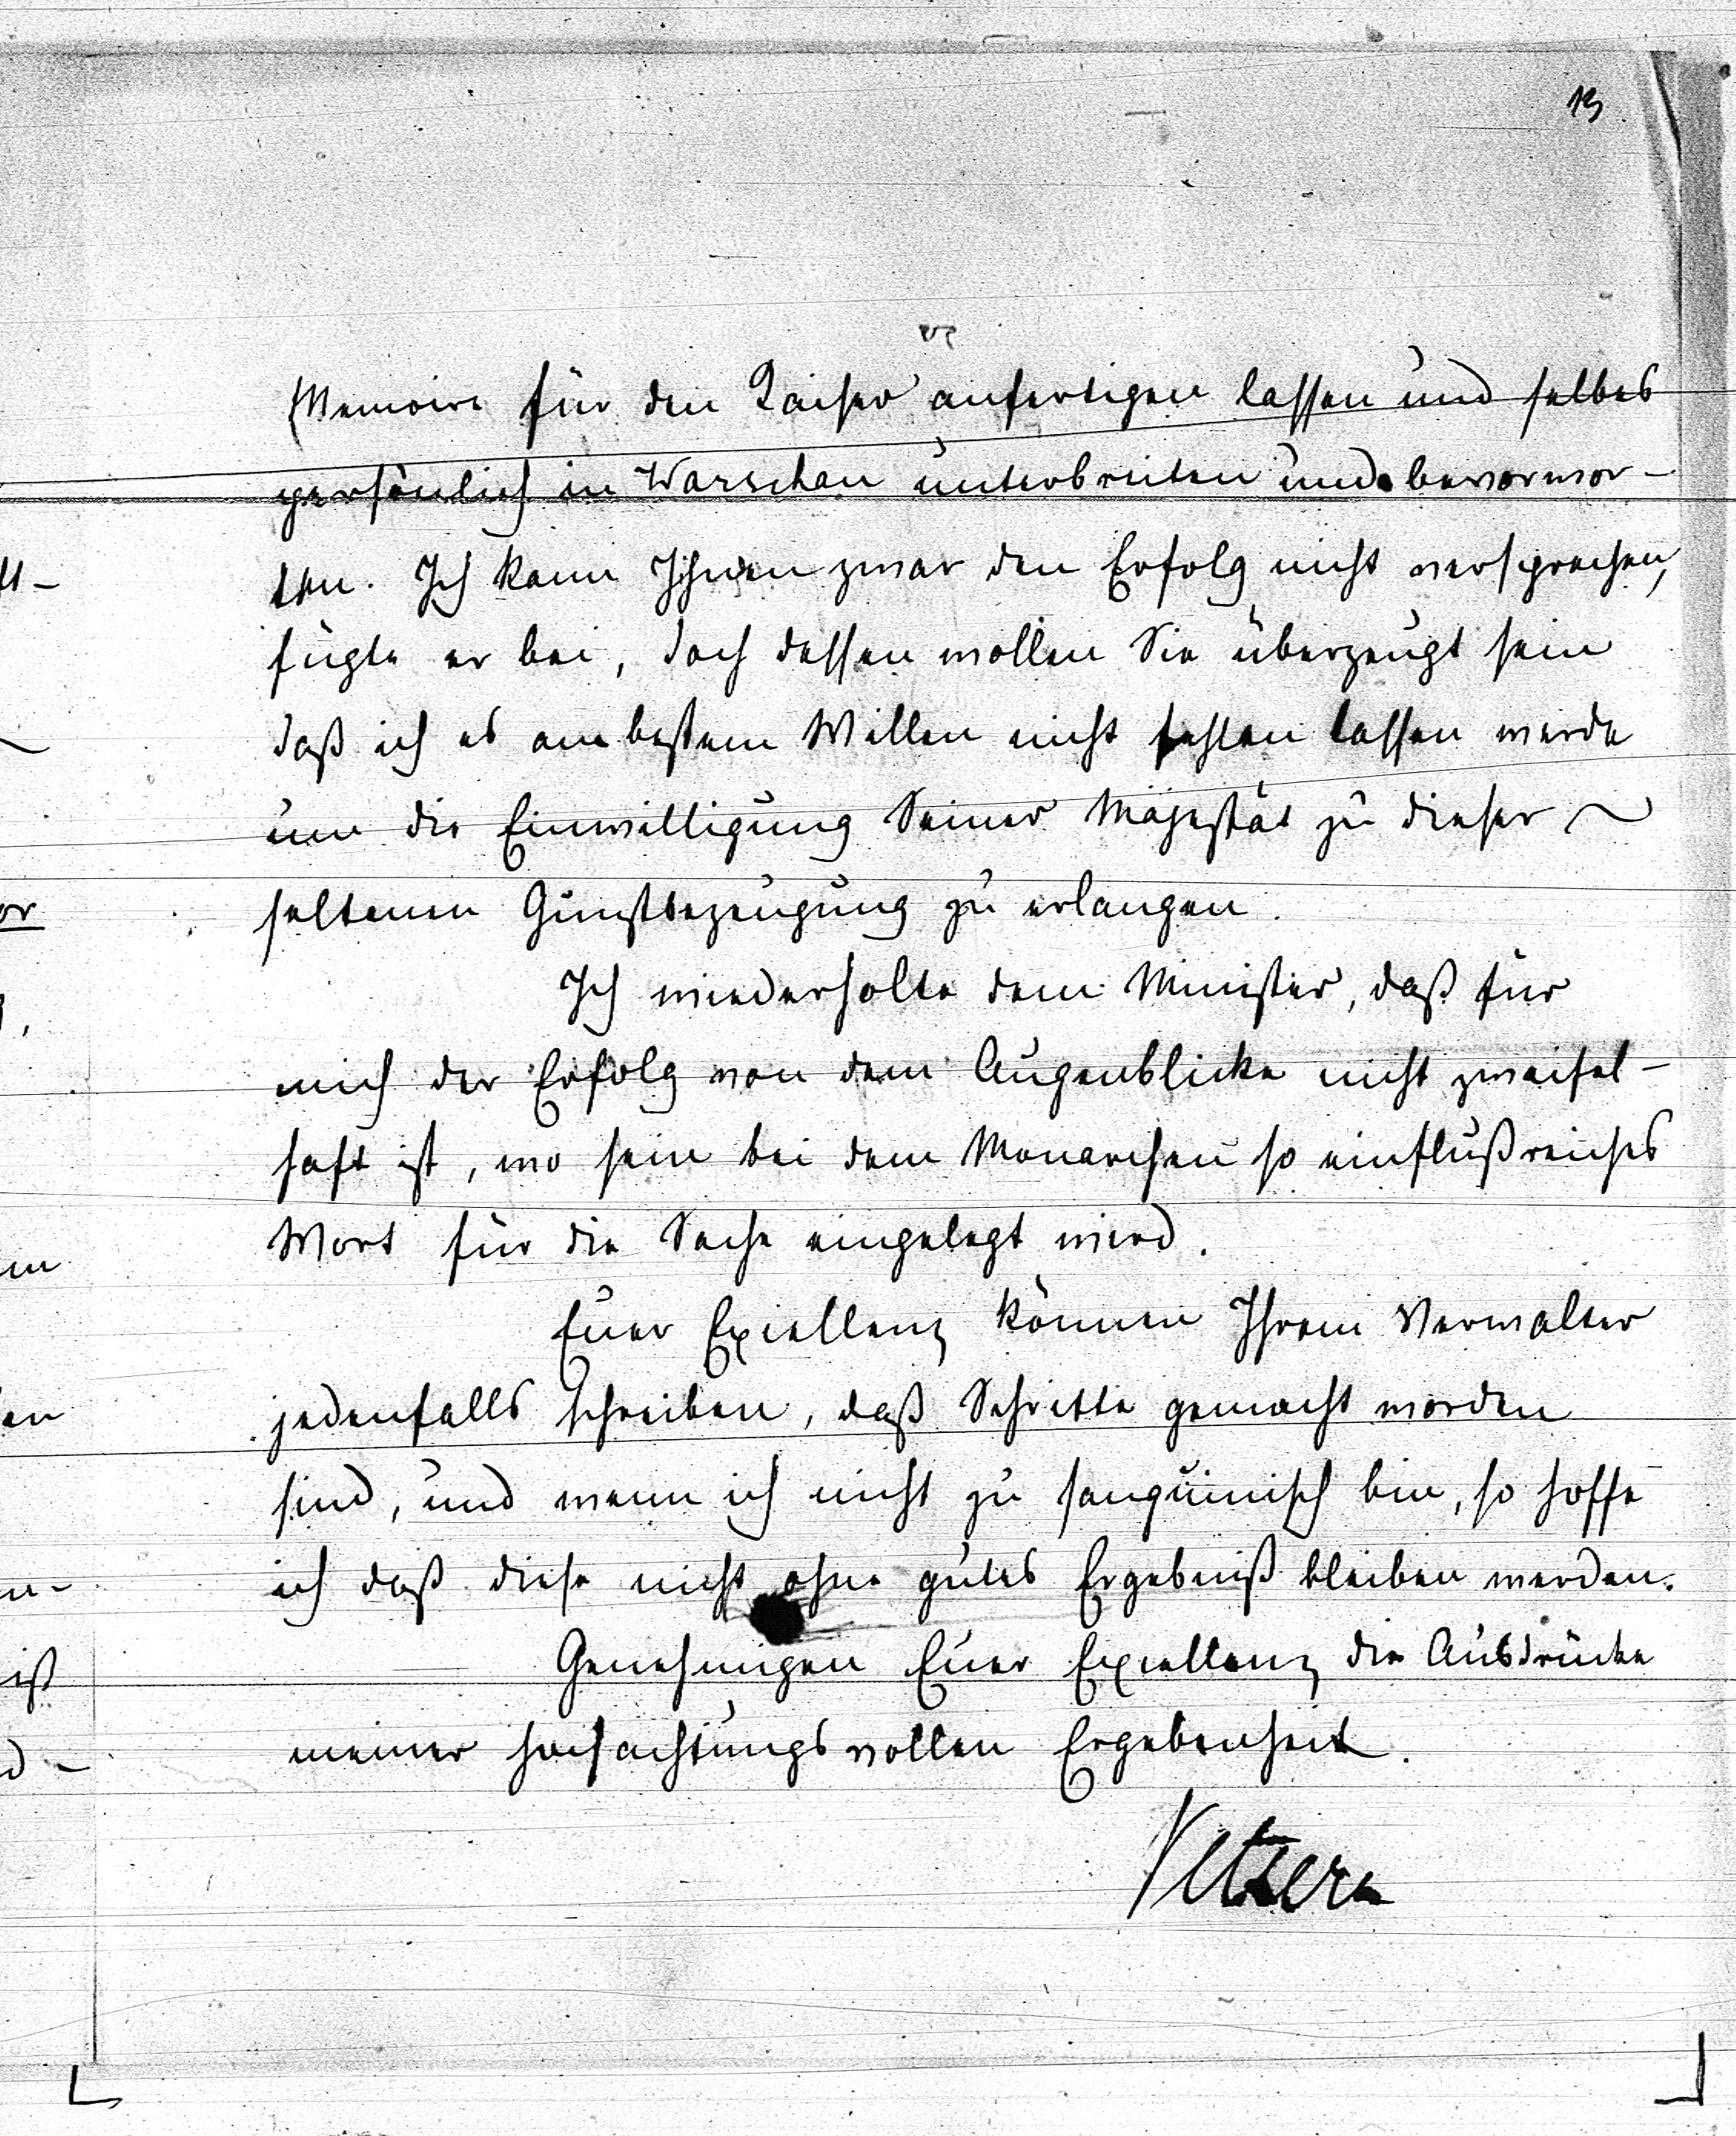 13
Memoire für den Kaiser anfertigen lassen und selbes
persönlich in Warschau unterbreiten und bevorwor-
ten. Ich kann Ihnen zwar den Erfolg nicht versprechen,
fügte er bei, doch dessen wollen Sie überzeugt sein
daß ich es am bestem Willen nicht fehlen lassen werde
um die Einwilligung Seiner Majestät zu dieser
seltenen Gunstbezeugung zu erlangen.
Ich wiederholte dem Minister, daß für
mich der Erfolg von dem Augenblicke nicht zweifel-
haft ist, wo sein bei dem Monarchen so einflußreiches
Wort für die Sache eingelegt wird.
Euer Excellenz können Ihrem Verwalter
jedenfalls schreiben, daß Schritte gemacht worden
sind, und wenn ich nicht zu sanguinisch bin, so hoffe
ich daß diese nicht ohne gutes Ergebniß bleiben werden.
Genehmigen Euer Excellenz die Ausdrücke
meiner hochachtungsvollen Ergebenheit.
Vetsera